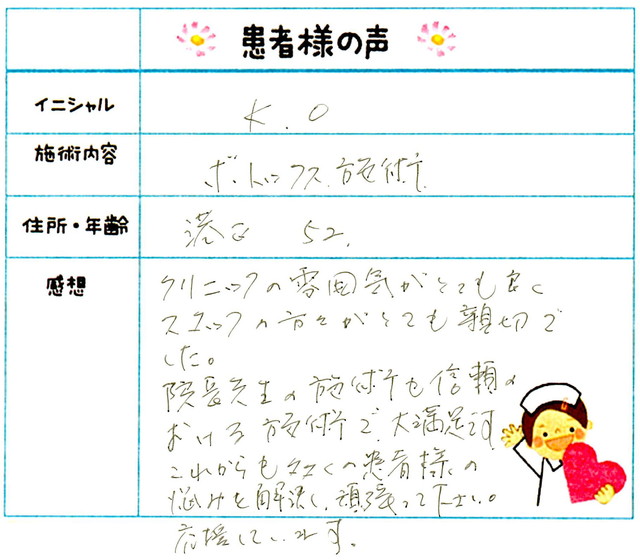 患者様の声
イニシャル
K.O
施術内容
ボトックス施術
住所・年齢
港区 52.
感想
クリニックの雰囲気がとても良く
スタッフの方々がとても親切で
した。
院長先生の施術も信頼の
おける施術で大満足です
これからも多くの患者様の
悩みを解決し頑張って下さい。
応援しています。